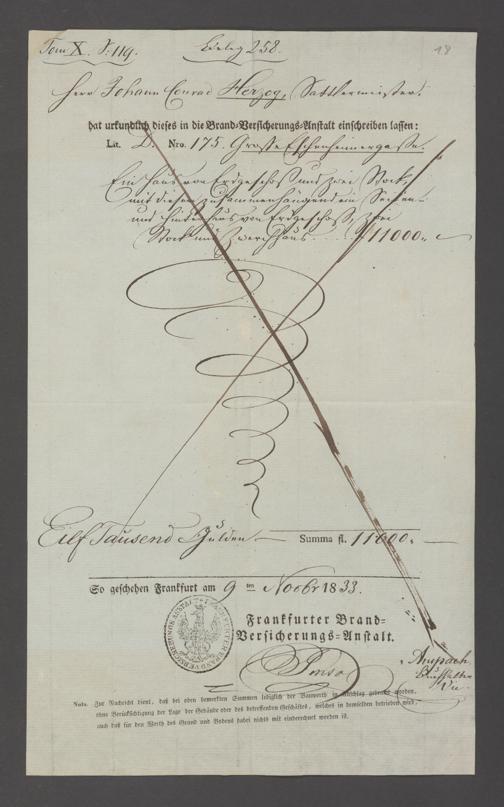 Tom X. S: 119. Beleg 258. 18
Herr Johann Conrad Herzog, Sattlermeister,
hat urkundlich dieses in die Brand-Versicherungs-Anstalt einschreiben lassen:
Lit. D. Nro. 175. Große Eschenheimergasse.
Ein Haus von Erdgeschoß und zwei Stock,
mit diesem zusammenhängend ein Seiten-
und Hinterhaus von Erdgeschoß, zwei
Stock und Zwerchhaus .... f 11000.
Eilf Tausend Gulden Summa fl. 11000.
So geschehen Frankfurt am 9 ten Novbr 1833.
FRANKFURTER BRAND VERSICHERUNGS ANSTALT
Frankfurter Brand-
Versicherungs-Anstalt.
Anspach
Buchhalter
Nota. Zur Nachricht dient, daß bei oben bemerkten Summen lediglich der Bauwerth in Anschlag gebracht worden,
ohne Berücksichtigung der Lage der Gebäude oder des betreffenden Geschäftes, welches in demselben betrieben wird,
auch daß für den Werth des Grund und Bodens dabei nichts mit eingerechnet worden ist.